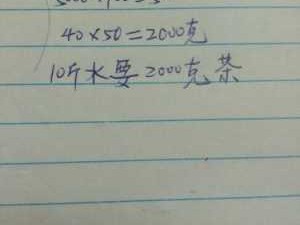 40×50=2000克
10斤水要2000克茶